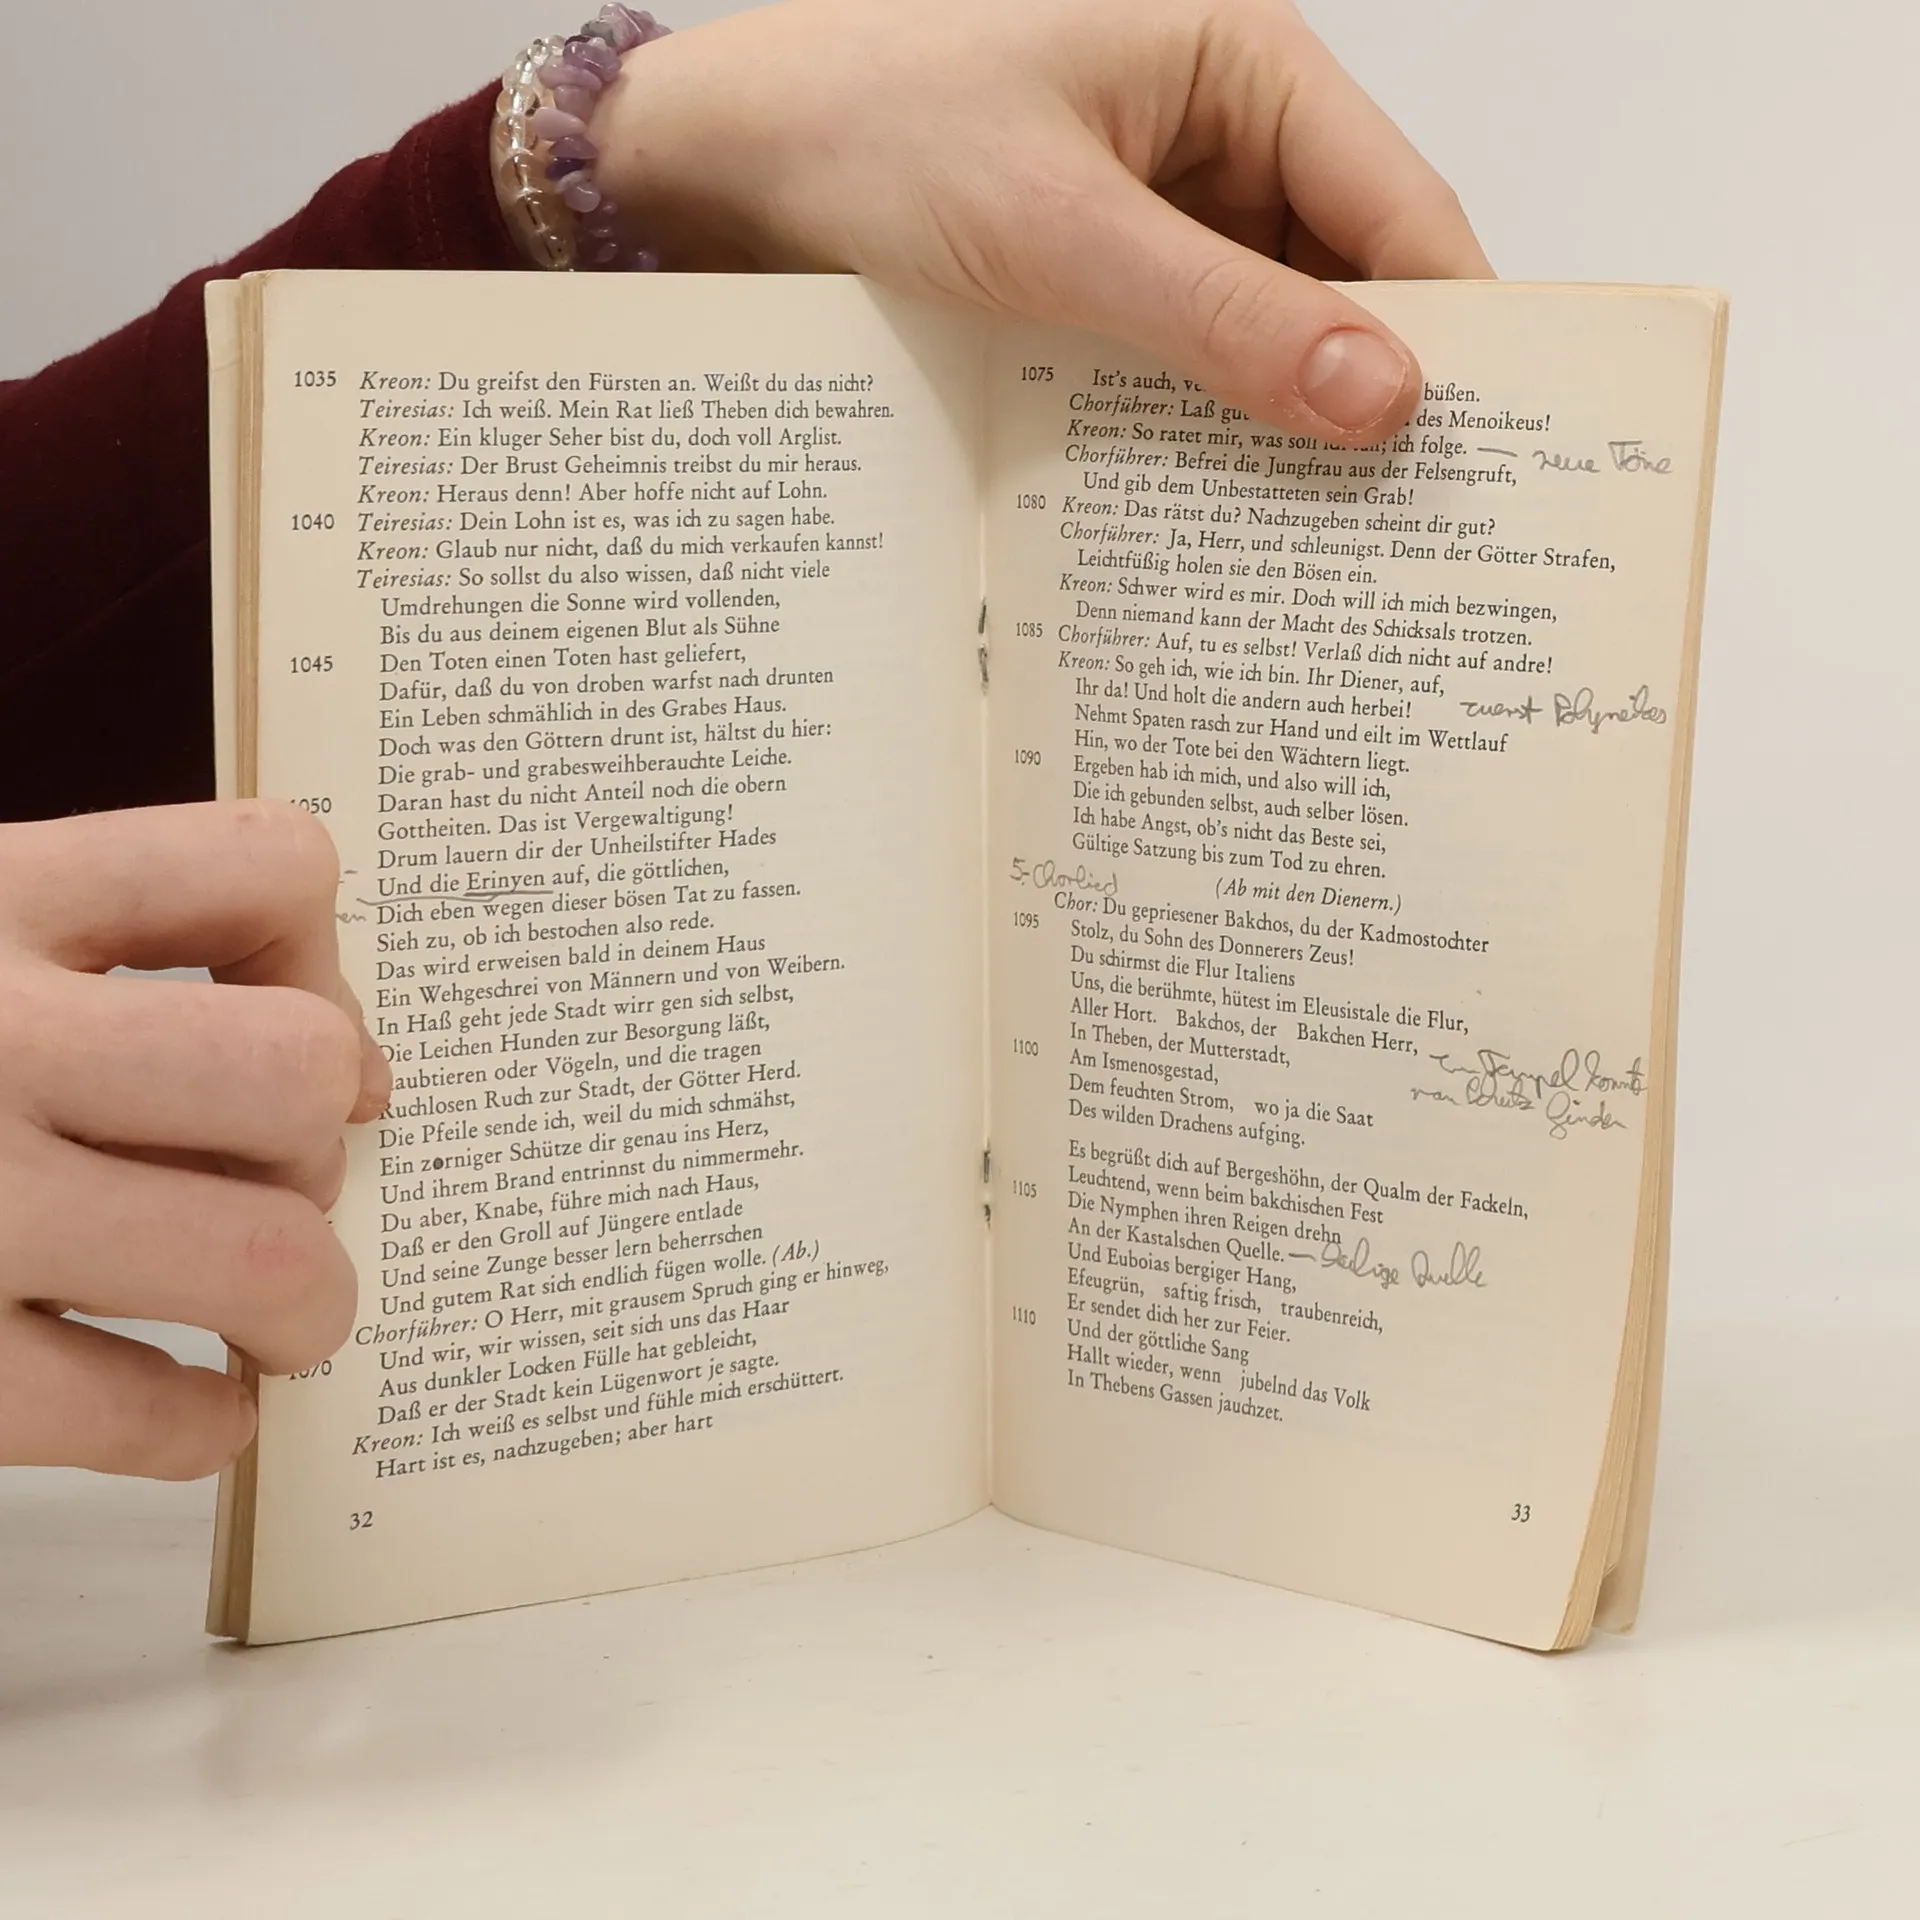 1035 Kreon: Du greifst den Fürsten an. Weißt du das nicht?
Teiresias: Ich weiß. Mein Rat ließ Theben dich bewahren.
Kreon: Ein kluger Seher bist du, doch voll Arglist.
Teiresias: Der Brust Geheimnis treibst du mir heraus.
Kreon: Heraus denn! Aber hoffe nicht auf Lohn.
1040 Teiresias: Dein Lohn ist es, was ich zu sagen habe.
Kreon: Glaub nur nicht, daß du mich verkaufen kannst!
Teiresias: So sollst du also wissen, daß nicht viele
Umdrehungen die Sonne wird vollenden,
Bis du aus deinem eigenen Blut als Sühne
1045 Den Toten einen Toten hast geliefert,
Dafür, daß du von droben warfst nach drunten
Ein Leben schmählich in des Grabes Haus.
Doch was den Göttern drunt ist, hältst du hier:
Die grab- und grabesweihberauchte Leiche.
1050 Daran hast du nicht Anteil noch die obern
Gottheiten. Das ist Vergewaltigung!
Drum lauern dir der Unheilstifter Hades
Und die Erinyen auf, die göttlichen,
Dich eben wegen dieser bösen Tat zu fassen.
Sieh zu, ob ich bestochen also rede.
Das wird erweisen bald in deinem Haus
Ein Wehgeschrei von Männern und von Weibern.
In Haß geht jede Stadt wirr gen sich selbst,
Die Leichen Hunden zur Besorgung läßt,
aubtieren oder Vögeln, und die tragen
Ruchlosen Ruch zur Stadt, der Götter Herd.
Die Pfeile sende ich, weil du mich schmähst,
Ein zorniger Schütze dir genau ins Herz,
Und ihrem Brand entrinnst du nimmermehr.
Du aber, Knabe, führe mich nach Haus,
Daß er den Groll auf Jüngere entlade
Und seine Zunge besser lern beherrschen
Und gutem Rat sich endlich fügen wolle. (Ab.)
Chorführer: O Herr, mit grausem Spruch ging er hinweg,
Und wir, wir wissen, seit sich uns das Haar
1070 Aus dunkler Locken Fülle hat gebleicht,
Daß er der Stadt kein Lügenwort je sagte.
Kreon: Ich weiß es selbst und fühle mich erschüttert.
Hart ist es, nachzugeben; aber hart
32
1075 Ist's auch, büßen.
Chorführer: Laß des Menoikeus!
Kreon: So ratet mir, was soll ich folge. — neue Töne
Chorführer: Befrei die Jungfrau aus der Felsengruft,
Und gib dem Unbestatteten sein Grab!
1080 Kreon: Das rätst du? Nachzugeben scheint dir gut?
Chorführer: Ja, Herr, und schleunigst. Denn der Götter Strafen,
Leichtfüßig holen sie den Bösen ein.
Kreon: Schwer wird es mir. Doch will ich mich bezwingen,
Denn niemand kann der Macht des Schicksals trotzen.
1085 Chorführer: Auf, tu es selbst! Verlaß dich nicht auf andre!
Kreon: So geh ich, wie ich bin. Ihr Diener, auf,
Ihr da! Und holt die andern auch herbei! zuerst Polyneikes
Nehmt Spaten rasch zur Hand und eilt im Wettlauf
Hin, wo der Tote bei den Wächtern liegt.
1090 Ergeben hab ich mich, und also will ich,
Die ich gebunden selbst, auch selber lösen.
Ich habe Angst, ob's nicht das Beste sei,
Gültige Satzung bis zum Tod zu ehren.
5. Chorlied (Ab mit den Dienern.)
Chor: Du gepriesener Bakchos, du der Kadmostochter
1095 Stolz, du Sohn des Donnerers Zeus!
Du schirmst die Flur Italiens
Uns, die berühmte, hütest im Eleusistale die Flur,
Aller Hort. Bakchos, der Bakchen Herr,
In Theben, der Mutterstadt, im Tempel konnte
1100 Am Ismenosgestad, man Schutz finden
Dem feuchten Strom, wo ja die Saat
Des wilden Drachens aufging.
Es begrüßt dich auf Bergeshöhn, der Qualm der Fackeln,
1105 Leuchtend, wenn beim bakchischen Fest
Die Nymphen ihren Reigen drehn
An der Kastalschen Quelle. — heilige Quelle
Und Euboias bergiger Hang,
Efeugrün, saftig frisch, traubenreich,
1110 Er sendet dich her zur Feier.
Und der göttliche Sang
Hallt wieder, wenn jubelnd das Volk
In Thebens Gassen jauchzet.
33